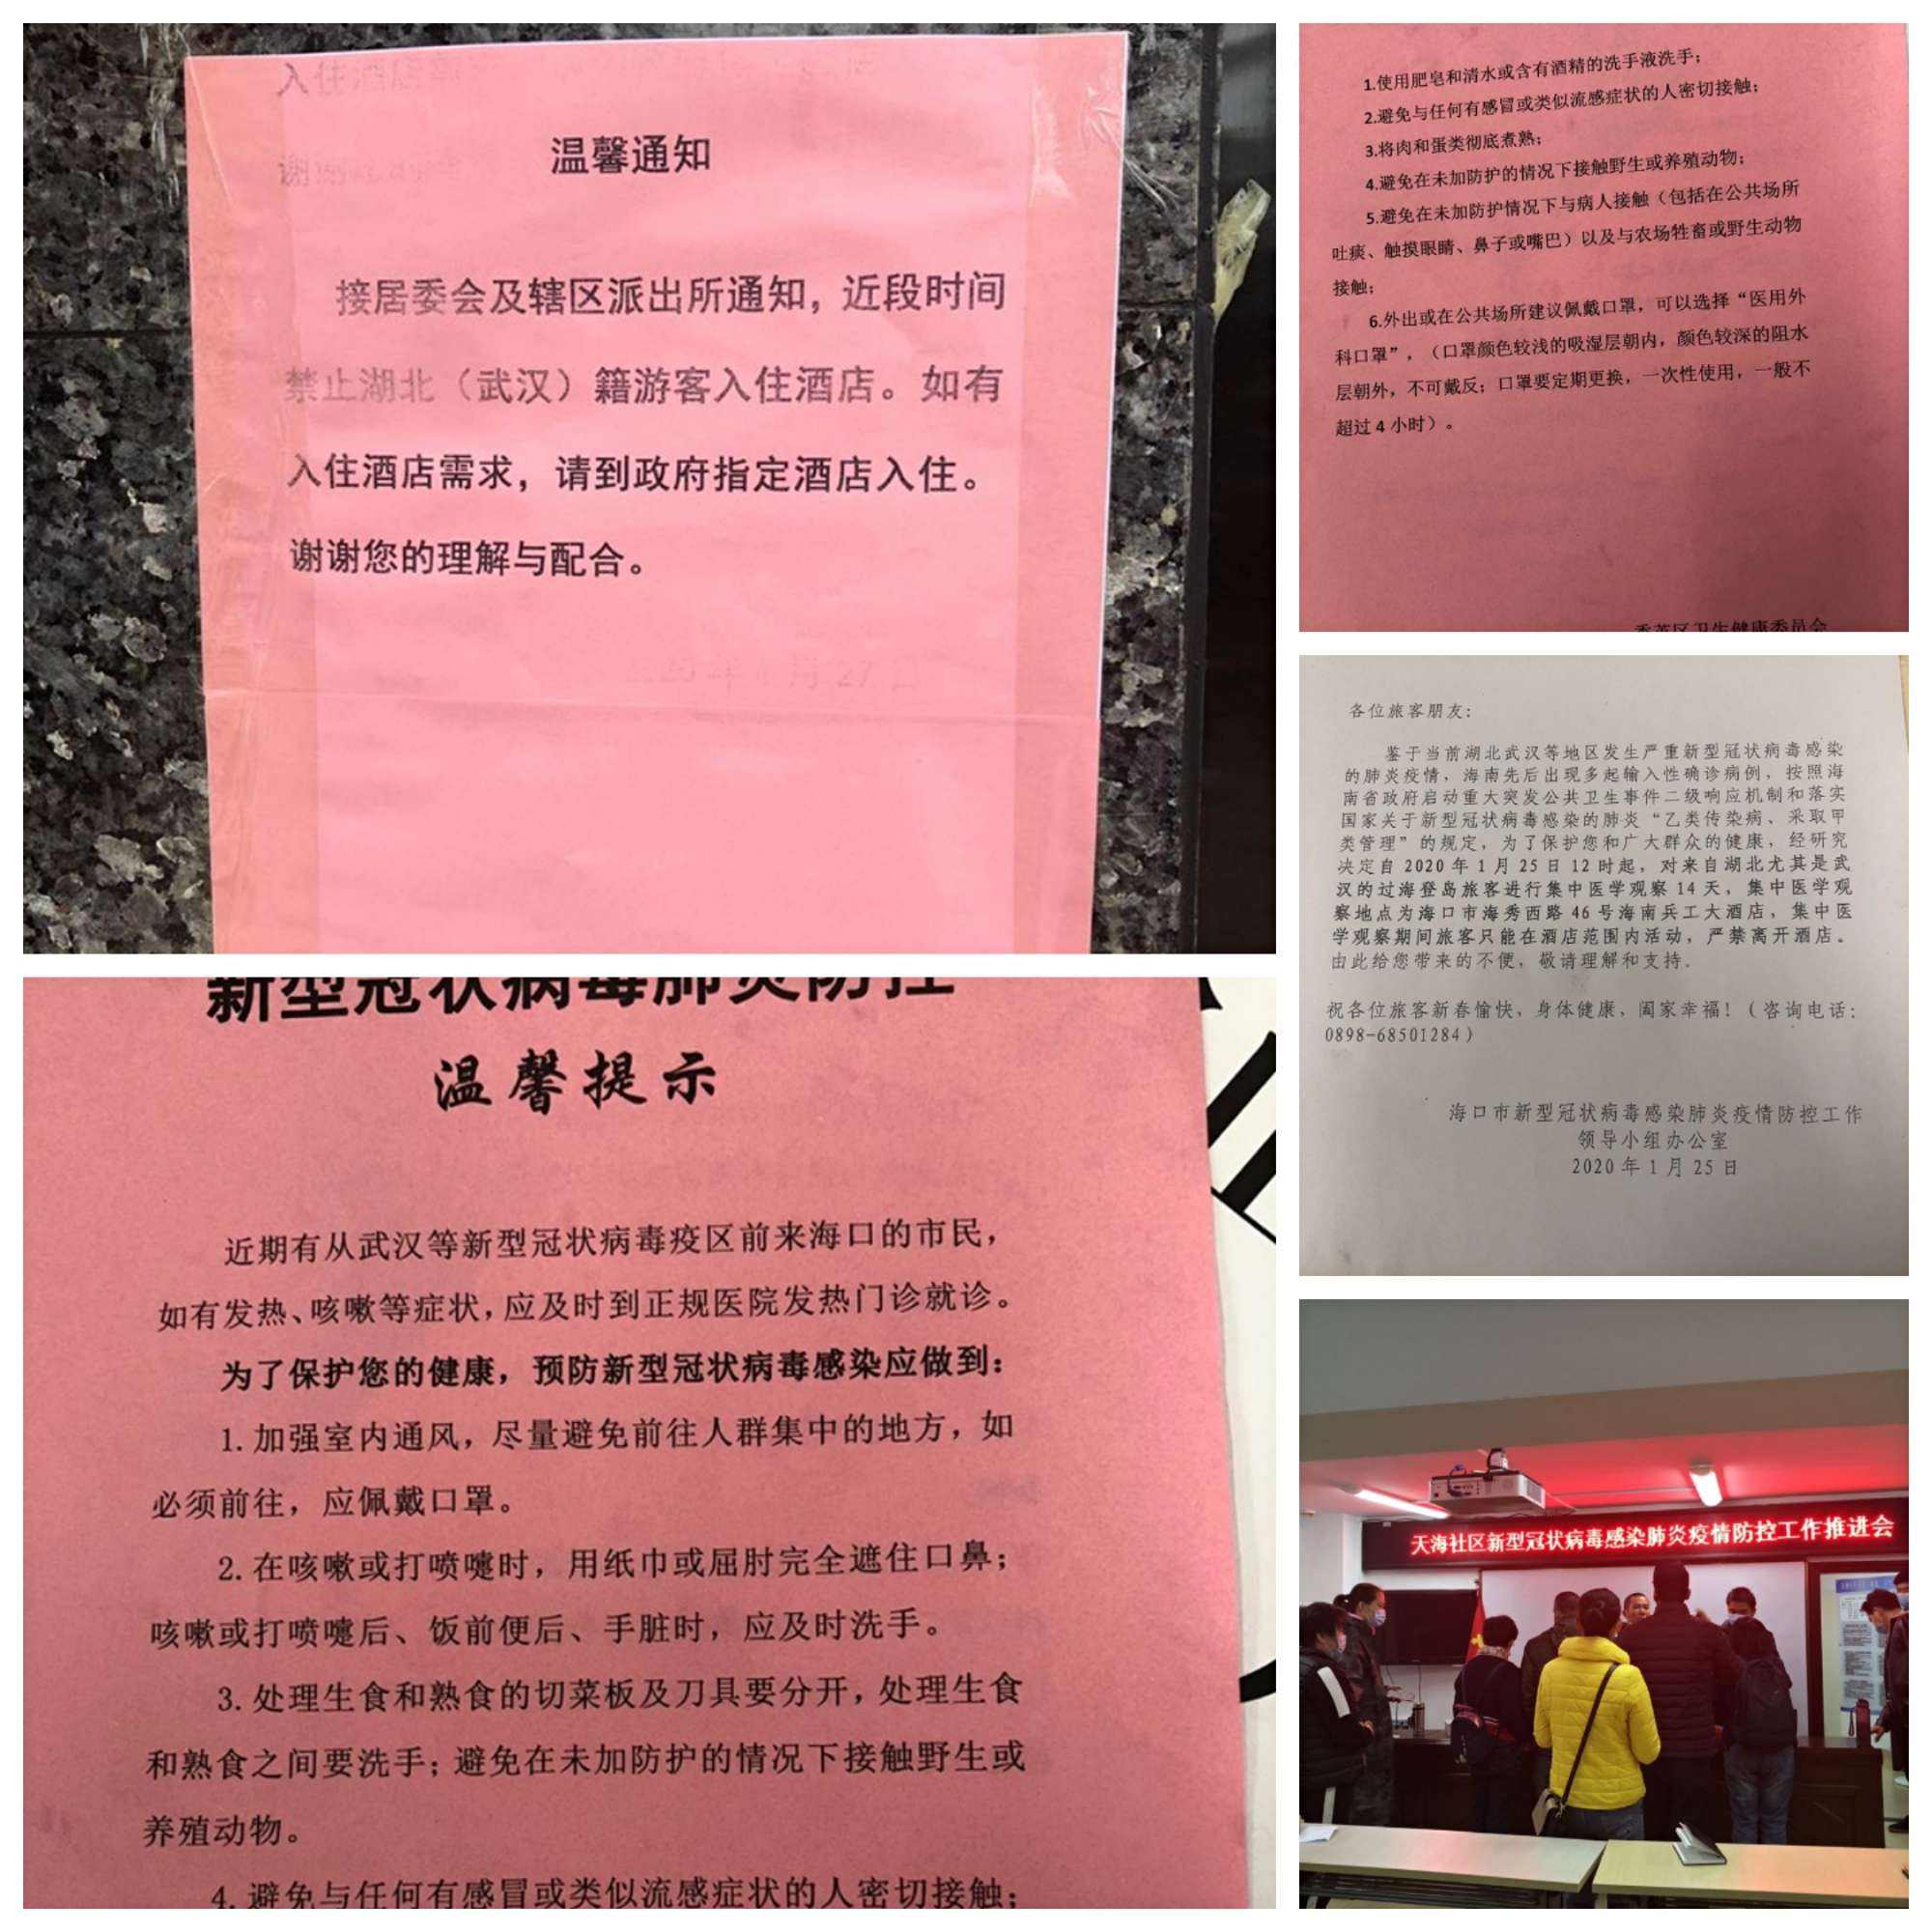 温馨通知
接居委会及辖区派出所通知，近段时间
禁止湖北（武汉）籍游客入住酒店。如有
入住酒店需求，请到政府指定酒店入住。
谢谢您的理解与配合。
2020年1月27日
新型冠状病毒肺炎防控
温馨提示
近期有从武汉等新型冠状病毒疫区前来海口的市民，
如有发热、咳嗽等症状，应及时到正规医院发热门诊就诊。
为了保护您的健康，预防新型冠状病毒感染应做到：
1.加强室内通风，尽量避免前往人群集中的地方，如
必须前往，应佩戴口罩。
2.在咳嗽或打喷嚏时，用纸巾或屈肘完全遮住口鼻；
咳嗽或打喷嚏后、饭前便后、手脏时，应及时洗手。
3.处理生食和熟食的切菜板及刀具要分开，处理生食
和熟食之间要洗手；避免在未加防护的情况下接触野生或
养殖动物。
4.避免与任何有感冒或类似流感症状的人密切接触；
1.使用肥皂和清水或含有酒精的洗手液洗手；
2.避免与任何有感冒或类似流感症状的人密切接触；
3.将肉和蛋类彻底煮熟；
4.避免在未加防护的情况下接触野生或养殖动物；
5.避免在未加防护情况下与病人接触（包括在公共场所
吐痰、触摸眼睛、鼻子或嘴巴）以及与农场牲畜或野生动物
接触；
6.外出或在公共场所建议佩戴口罩，可以选择“医用外
科口罩”，（口罩颜色较浅的吸湿层朝内，颜色较深的阻水
层朝外，不可戴反；口罩要定期更换，一次性使用，一般不
超过4小时）。
秀英区卫生健康委员会
各位旅客朋友：
鉴于当前湖北武汉等地区发生严重新型冠状病毒感染
的肺炎疫情，海南先后出现多起输入性确诊病例，按照海
南省政府启动重大突发公共卫生事件二级响应机制和落实
国家关于新型冠状病毒感染的肺炎“乙类传染病、采取甲
类管理”的规定，为了保护您和广大群众的健康，经研究
决定自2020年1月25日12时起，对来自湖北尤其是武
汉的过海登岛旅客进行集中医学观察14天，集中医学观
察地点为海口市海秀西路46号海南兵工大酒店，集中医
学观察期间旅客只能在酒店范围内活动，严禁离开酒店。
由此给您带来的不便，敬请理解和支持。
祝各位旅客新春愉快，身体健康，阖家幸福！（咨询电话：
0898-68501284）
海口市新型冠状病毒感染肺炎疫情防控工作
领导小组办公室
2020年1月25日
天海社区新型冠状病毒感染肺炎疫情防控工作推进会